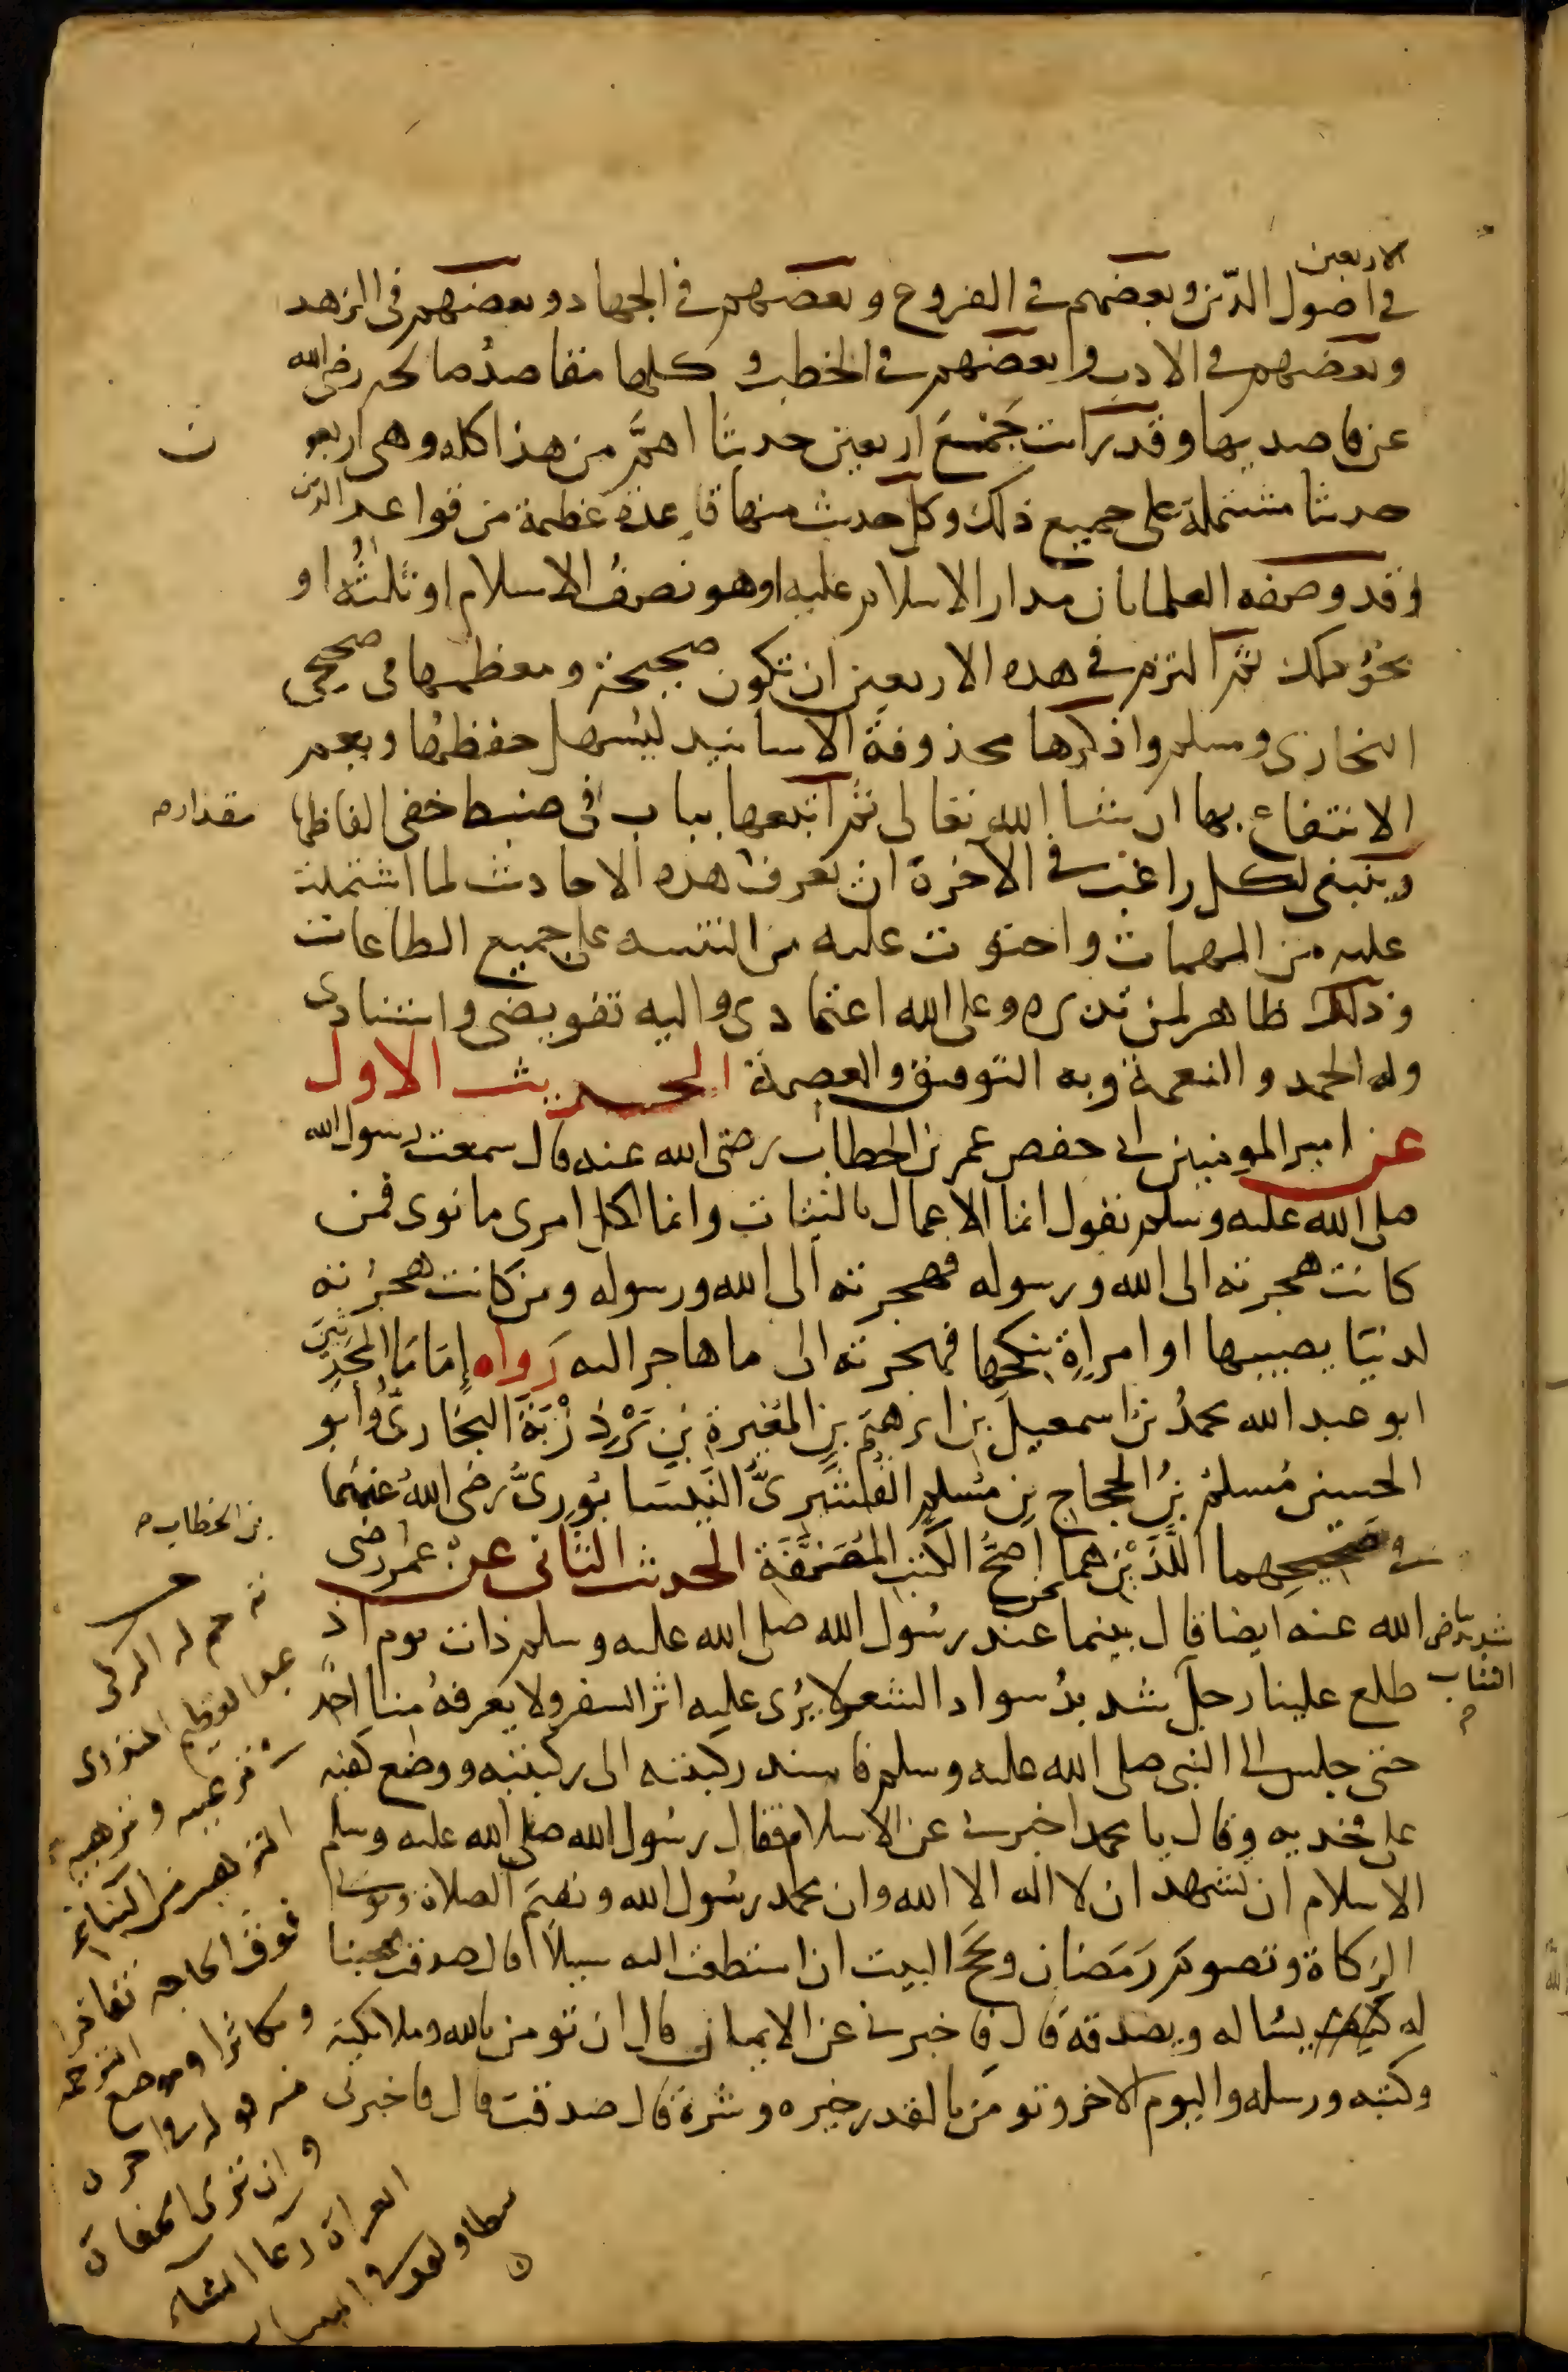 الاربعين
في اصول الدّين وبعضهم في الفروع وبعضهم في الجهاد وبعضهم في الزهد
وبعضهم في الادب وبعضهم في الخطب وكلها مقاصد صالحه رضي الله
عن قاصديها وقد رايت جَمْعَ اربعين حديثا اهمَّ من هذا كله وهي اربعو
ن
حديثا مشتملة على جميع ذلك وكل حديث منها قاعدة عظيمة من قواعد الدين
وقد وصفه العلما بان مدار الاسلام عليه او هو نصفُ الاسلام او ثلثُه او
نحوُ ذلك ثم التزم في هذه الاربعين ان تكون صحيحة ومعظمها في صحيحي
البخاري ومسلم واذكرها محذوفةَ الاسانيد ليسهل حفظها ويعم
الانتفاع بها ان شا الله تعالى ثم اتبعها بباب في ضبط خفي الفاظها
مقداره
وينبغي لكل راغب في الآخرة ان يعرف هذه الاحاديث لما اشتملت
عليه من المهمات واحتوت عليه من التنبيه على جميع الطاعات
وذلك ظاهر لمن تدبره وعلى الله اعتمادي واليه تفويضي واستنادي
وله الحمد والنعمة وبه التوفيق والعصمة الحديث الاول
عن امير المومنين ابي حفص عمر بن الخطاب رضي الله عنه قال سمعت رسول الله
صلى الله عليه وسلم يقول انما الاعمال بالنيات وانما لكل امرى ما نوى فمن
كانت هجرته الى الله ورسوله فهجرته الى الله ورسوله ومن كانت هجرته
لدنيَا يصيبها او امراةٍ ينكحها فهجرته الى ما هاجر اليه رَواه إمَامَا المحدِّثين
ابو عبد الله محمدُ بن اسمعيل بن ابرهيم بن المغيرة بن بَرْدِزْبَة البخاريُّ وأبو
الحسين مُسلمُ بنُ الحجاج بن مُسلم القُشَيريُّ النَّيسَابُوريُّ رضي اللهُ عنهما
في صَحيحِهما اللَّذَيْن هما اصحُّ الكتب المُصَنَّفَة الحديث الثاني عن عمر رضي
بن الخطاب
الله عنه ايضا قال بينما نحن عند رسُول الله صلى الله عليه وسلم ذات يوم اذ
طلع علينا رجل شديدُ سواد الشعر لا يُرى عليه اثر السفر ولا يعرفهُ منا احدٌ
شديد بياض
الثياب
حتى جلس الى النبي صلى الله عليه وسلم فاسند ركبتيه الى ركبتيه ووضع كفيه
على فخديه وقال يا محمد اخبرني عن الاسلام فقال رسُول الله صلى الله عليه وسلم
الاسلام ان تشهد ان لا اله الا الله وان محمد رسُول الله وتقيمَ الصلاة وتوتي
الزكاة وتصومَ رَمَضان وتحجَّ البيت ان استطعت اليه سبيلًا قال صدقت فعجبنا
له يساله ويصدقه قال فاخبرني عن الايمان قال ان تومن بالله وملايكته
وكتبه ورسله واليوم الاخر وتومن بالقدر خيره وشره قال صدقت قال فاخبرني
عبد العظيم المنذري
ترغيبه وترهيبه
فوق الحاجه تفاخرا
وتكاثرا